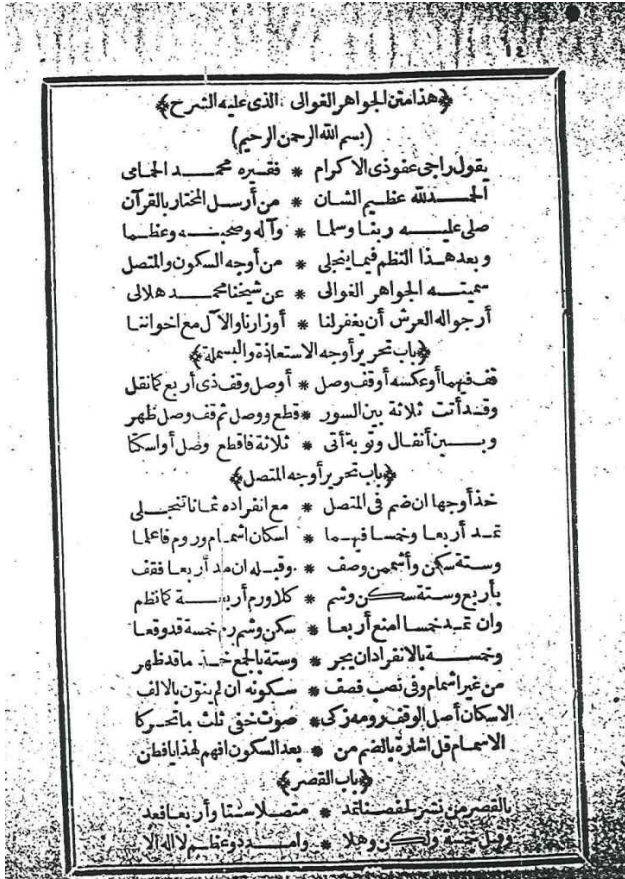 ١٤
﴿هذا متن الجواهر الغوالى الذى عليه الشرح﴾
(بسم الله الرحمن الرحيم)
يقول راجى عفو ذى الاكرام * فقيره محمد الحمامى
الحمد لله عظيم الشان * من أرسل المختار بالقرآن
صلى عليه ربنا وسلما * وآله وصحبه وعظما
وبعد هذا النظم فيما ينجلى * من أوجه السكون والمتصل
سميته الجواهر الغوالى * عن شيخنا محمد هلالى
أرجو اله العرش أن يغفر لنا * أوزارنا والآل مع اخواننا
﴿باب تحرير أوجه الاستعاذة والبسملة﴾
قف فيهما أو عكسه أوقف وصل * أوصل وقف ذى أربع كما نقل
وقد أتت ثلاثة بين السور * قطع ووصل ثم قف وصل ظهر
وبين أنفال وتوبة أتى * ثلاثة فاقطع وصل أو اسكتا
﴿باب تحرير أوجه المتصل﴾
خذ أوجها ان ضم فى المتصل * مع انفراده ثمانا تنجلى
تمد أربعا وخمسا فيهما * اسكان اشمام وروم فاعلما
وستة سكن وأشممن وصف * وقبله ان مد أربعا فقف
بأربع وستة سكن وشم * كلا ورم أربعة كما نظم
وان تمد خمسا امنع أربعا * سكن وشم رم خمسة قد وقعا
وخمسة بالانفراد ان يجر * وستة بالجمع خذ ما قد ظهر
من غير اشمام وفى نصب فصف * سكونه ان لم ينون بالالف
الاسكان أصل الوقف رومه زكى * صوت خفى ثلث ما تحركا
الاشمام قل اشارة بالضم من * بعد السكون افهم لهذا يافطن
﴿باب القصر﴾
بالقصر من نشر لحفصنا تمد * متصلا ستا وأربعا فعد